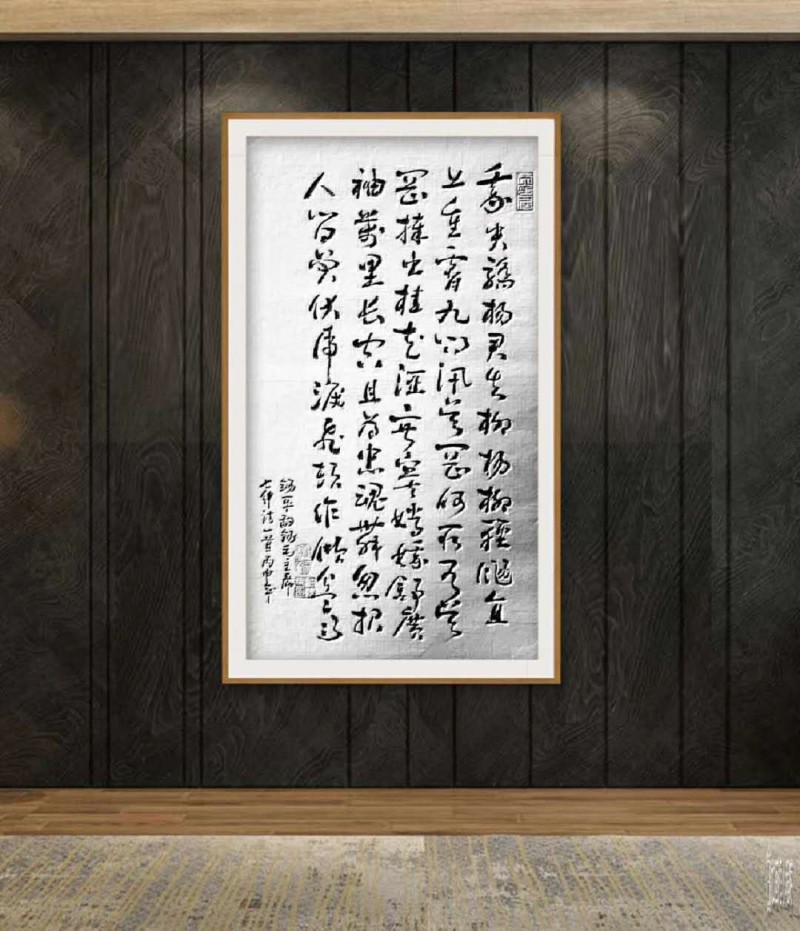 我失骄杨君失柳杨柳轻飏直
上重霄九问讯吴刚何所有吴
刚捧出桂花酒寂寞嫦娥舒广
袖万里长空且为忠魂舞忽报
人间曾伏虎泪飞顿作倾盆雨
毛主席
丙申年